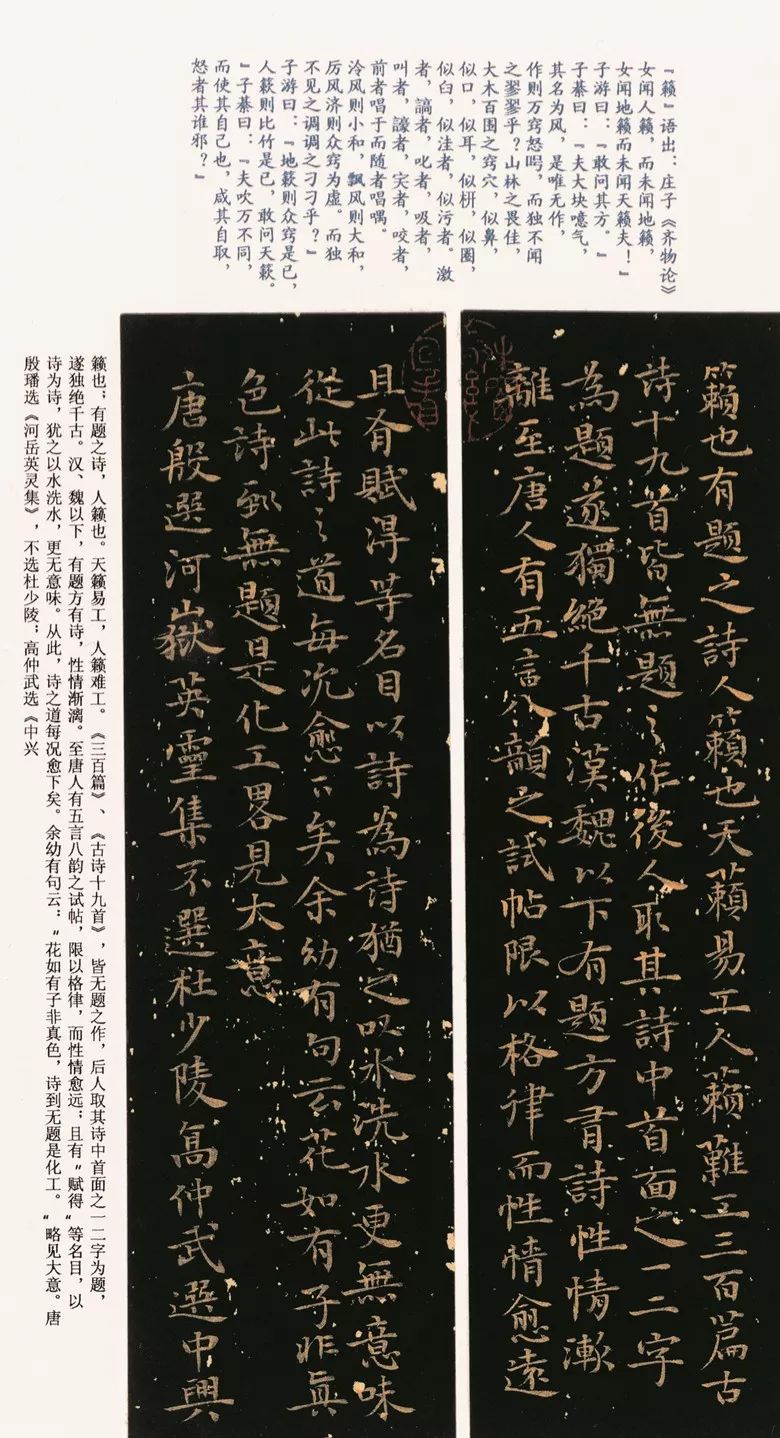 『籁』语出：庄子《齐物论》
女闻人籁，而未闻地籁，
女闻地籁而未闻天籁夫！』
子游曰：『敢问其方。』
子綦曰：『夫大块噫气，
其名为风，是唯无作，
作则万窍怒呺，而独不闻
之翏翏乎？山林之畏佳，
大木百围之窍穴，似鼻，
似口，似耳，似枅，似圈，
似臼，似洼者，似污者。激
者，謞者，叱者，吸者，
叫者，譹者，宎者，咬者，
前者唱于而随者唱喁。
泠风则小和，飘风则大和，
厉风济则众窍为虚。而独
不见之调调之刁刁乎？』
子游曰：『地籁则众窍是已，
人籁则比竹是已，敢问天籁。
』子綦曰：『夫吹万不同，
而使其自己也，咸其自取，
怒者其谁邪？』
籟也有題之詩人籟也天籟易工人籟難工三百篇古
詩十九首皆無題之作後人取其詩中首面之一二字
為題遂獨絕千古漢魏以下有題方有詩性情漸
離至唐人有五言八韻之試帖限以格律而性情愈遠
且有賦得等名目以詩為詩猶之以水洗水更無意味
從此詩之道每況愈下矣余幼有句云花如有子非真
色詩到無題是化工畧見大意
唐殷選河嶽英靈集不選杜少陵高仲武選中興
籁也；有题之诗，人籁也。天籁易工，人籁难工。《三百篇》、《古诗十九首》，皆无题之作，后人取其诗中首面之一二字为题，
遂独绝千古。汉、魏以下，有题方有诗，性情渐漓。至唐人有五言八韵之试帖，限以格律，而性情愈远；且有“赋得“等名目，以
诗为诗，犹之以水洗水，更无意味。从此，诗之道每况愈下矣。余幼有句云：“花如有子非真色，诗到无题是化工。“略见大意。唐
殷璠选《河岳英灵集》，不选杜少陵；高仲武选《中兴